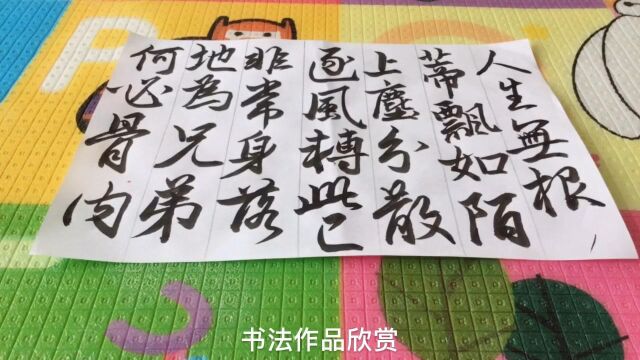 人生無根
蒂飄如陌
上塵分散
逐風轉此已
非常身落
地為兄弟
何必骨肉
P
书法作品欣赏